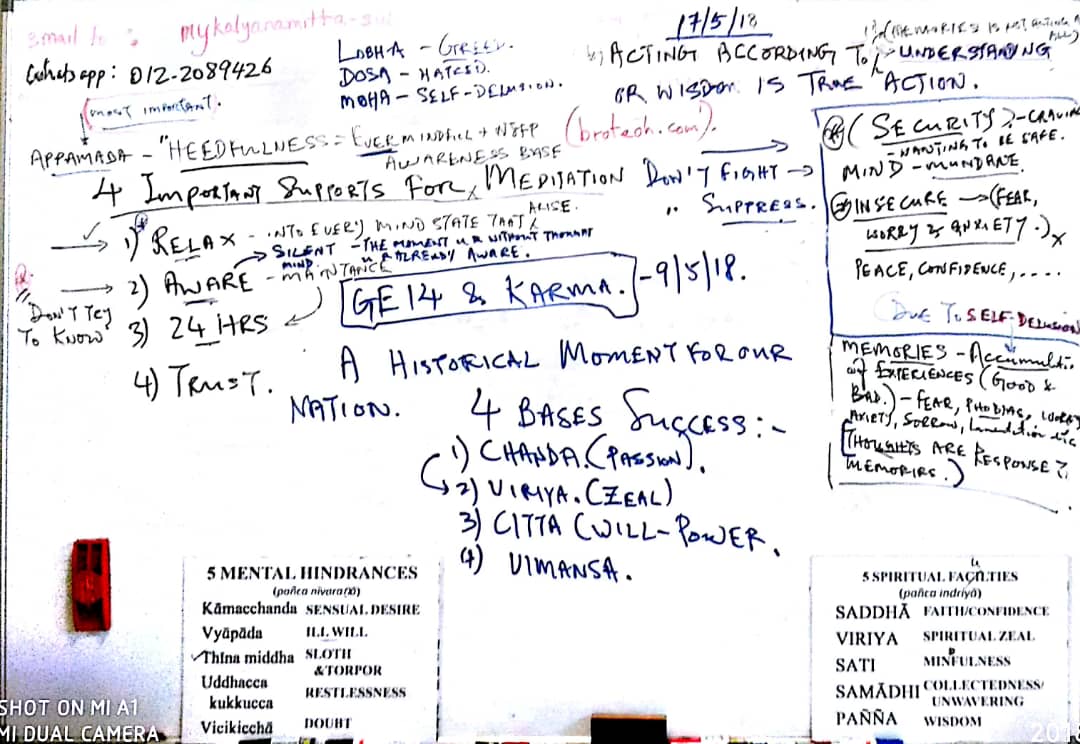 Email to : mykalyanamitta-
Whatsapp: 012-2089426
(most important).
LOBHA - GREED.
DOSA - HATRED.
MOHA - SELF-DELUSION.
17/5/18
(MEMORIES IS NOT ACTING
ACTING ACCORDING TO UNDERSTANDING
OR WISDOM IS TRUE ACTION.
APPAMADA - "HEEDFULNESS = EVER MINDFUL +
AWARENESS BASE
(brotech.com).
4 IMPORTANT SUPPORTS FOR MEDITATION
DON'T FIGHT →
" SUPPRESS.
1) RELAX - INTO EVERY MIND STATE THAT
ARISE.
SILENT MIND - THE MOMENT U R WITHOUT THOUGHT
U R ALREADY AWARE.
2) AWARE - MAINTANCE
DON'T TRY
TO KNOW
3) 24 HRS
4) TRUST.
GE14 & KARMA. - 9/5/18.
A HISTORICAL MOMENT FOR OUR
NATION.
4 BASES SUCCESS:-
1) CHANDA. (PASSION).
2) VIRIYA. (ZEAL)
3) CITTA (WILL-POWER.
(4) VIMANSA.
(SECURITY)-CRAVING
- WANTING TO BE SAFE.
MIND - MUNDANE.
INSECURE → (FEAR,
WORRY & ANXIETY.) x
PEACE, CONFIDENCE, ....
DUE TO SELF DELUSION
MEMORIES - Accumulatio
of EXPERIENCES (GOOD &
BAD.) - FEAR, PHOBIAS, WORRY
AXIETY, SORROW,
[THOUGHTS ARE RESPONSE
MEMORIES.)
5 MENTAL HINDRANCES
(pañca nivaraṇā)
Kāmacchanda SENSUAL DESIRE
Vyāpāda ILL WILL
Thīna middha SLOTH
&TORPOR
Uddhacca
kukkucca RESTLESSNESS
Vicikicchā DOUBT
5 SPIRITUAL FACULTIES
(pañca indriyā)
SADDHĀ FAITH/CONFIDENCE
VIRIYA SPIRITUAL ZEAL
SATI MINDFULNESS
SAMĀDHI COLLECTEDNESS/
UNWAVERING
PAÑÑA WISDOM
SHOT ON MI A1
MI DUAL CAMERA